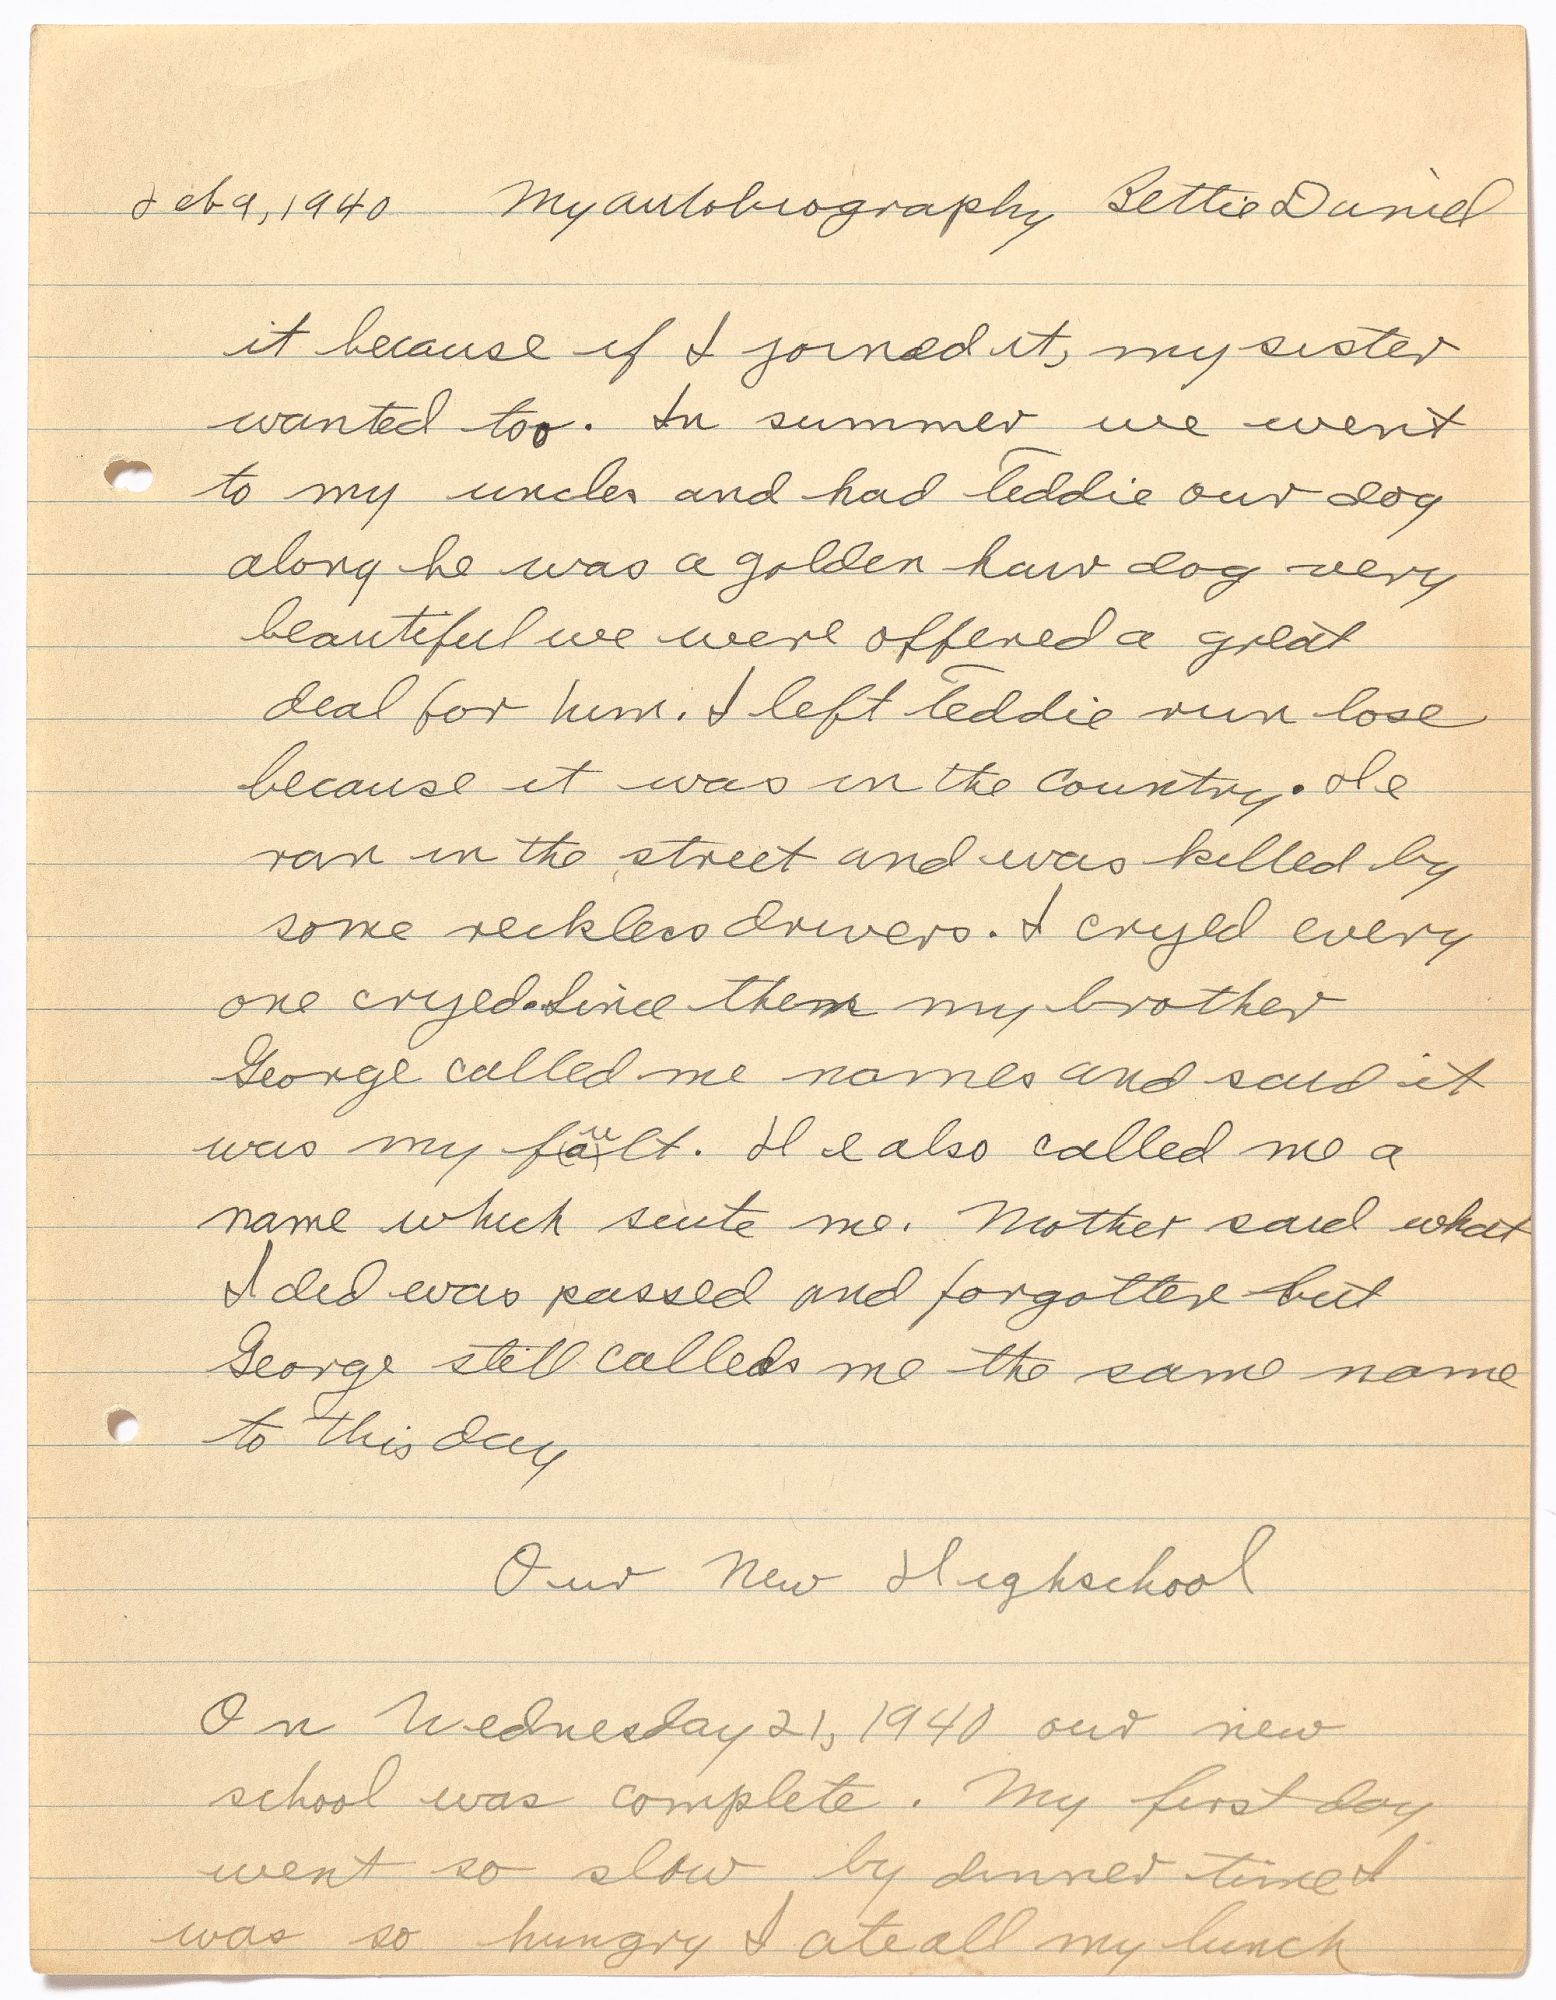 Feb 9, 1940 My autobiography Bettie Daniel
it because if I joined it, my sister
wanted too. In summer we went
to my uncles and had Teddie our dog
along he was a golden hair dog very
beautiful we were offered a great
deal for him. I left Teddie run lose
because it was in the country. He
ran in the street and was killed by
some reckless drivers. I cryed every
one cryed. Since then my brother
George called me names and said it
was my fault. He also called me a
name which suite me. Mother said what
I did was passed and forgotten but
George still calleds me the same name
to this day
Our New Highschool
On Wednesday 21, 1940 our new
school was complete. My first day
went so slow by dinner time I
was so hungry I ate all my lunch